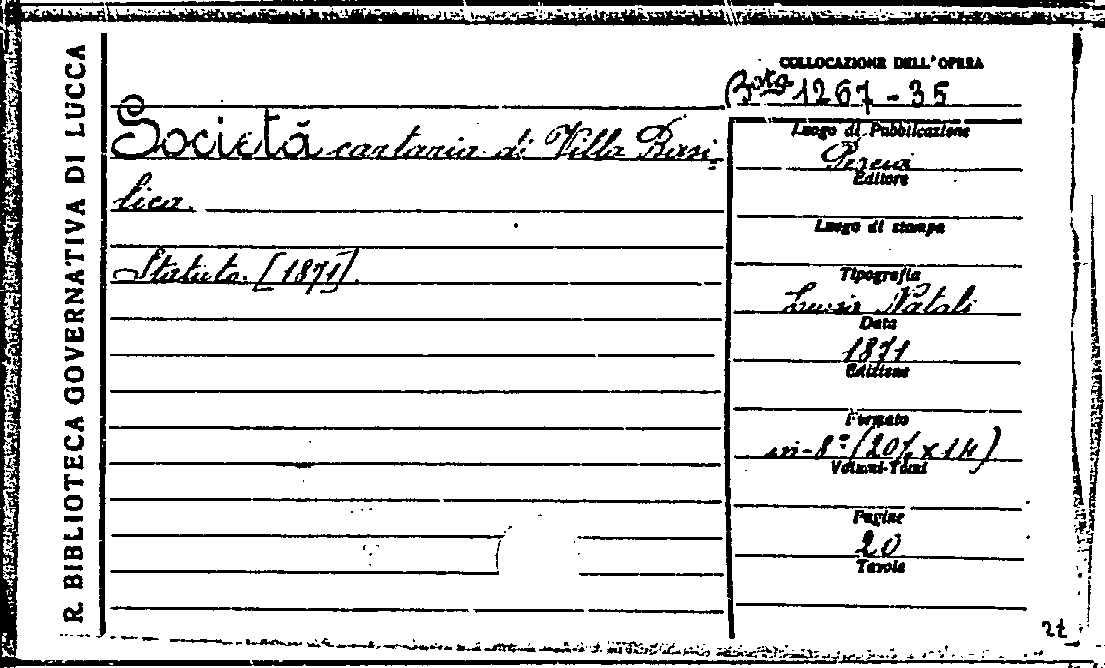 R. BIBLIOTECA GOVERNATIVA DI LUCCA
COLLOCAZIONE DELL'OPERA
Bta 1267-35
Società cartaria di Villa Basi-
lica.
Statuto. [1871].
Luogo di Pubblicazione
Pescia
Editore
Luogo di stampa
Tipografia
Lucia Natali
Data
1871
Edizione
Formato
in-8° (20½ x 14)
Volumi-Tomi
Pagine
20
Tavole